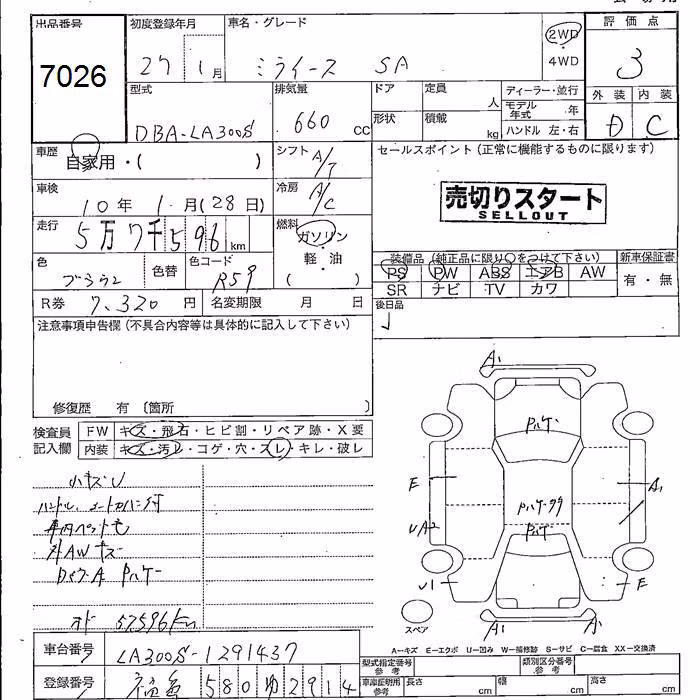 出品番号 初度登録年月 車名・グレード 評価点
7026 27 1月 ミライース SA 2WD・4WD 3
型式 排気量 ドア 定員 人 ディーラー・並行 外装 内装
DBA-LA300S 660 CC 形状 積載 kg モデル年式 年 D C
ハンドル 左・右
車歴 自家用・( ) シフト A/T セールスポイント(正常に機能するものに限ります)
車検 10年 1月(28日) 冷房 A/C 売切りスタート
SELLOUT
走行 5万7千596km 燃料 ガソリン
軽・油
( )
色 色替 色コード R59
装備品(純正品に限り○をつけて下さい) 新車保証書
PS PW ABS エアB AW 有・無
SR ナビ TV カワ
R券 7,320円 名変期限 月 日 後日品
注意事項申告欄(不具合内容等は具体的に記入して下さい)
修復歴 有 〔箇所 〕
検査員記入欄 FW キズ・飛石・ヒビ割・リペア跡・X要
内装 キズ・汚レ・コゲ・穴・スレ・キレ・破レ
小キズU
ハンドル、シートカバー付
車内ペット毛
外AWキズ
A PハゲE
オド 57596km
A1
Pハゲ
E
A1
Pハゲ
UA2
U1
E
スペア
A1
A-キズ E-エクボ U-凹み W-補修跡 S-サビ C-腐食 XX-交換済
車台番号 LA300S-1291437
型式指定番号 参考 類別区分番号 参考
登録番号 580 ゆ 2914
車庫証明用 参考 長さ cm 幅 cm 高さ cm